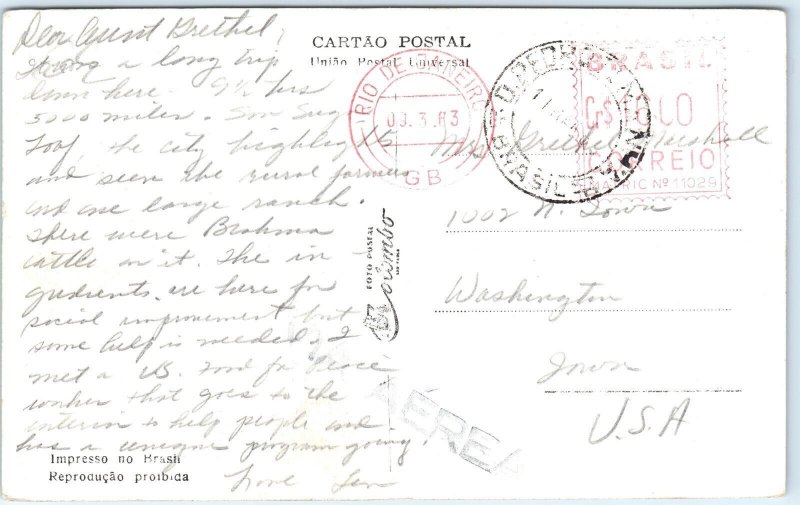 Dear Aunt Grethel,
It was a long trip
down here. 9½ hrs
5000 miles. Saw Sug
Loaf, the city highlights
and seen the rural farmers
and one large ranch.
There were Brahma
cattle on it. The in-
gredients are here for
social improvement but
some help is needed. I
met a U.S. Food for Peace
worker that goes to the
interior to help people and
has a unique program going.
Love
Impresso no Brasil
Reprodução proibida
CARTÃO POSTAL
União Postal Universal
RIO DE JANEIRO
GB
BRASIL
BRASIL
Cr$
CORREIO
MATRIC Nº 11029
FOTO POSTAL
Colombo
Mrs Grethel Marshall
1002 N. Iowa
Washington
Iowa
U.S.A
AÉREA